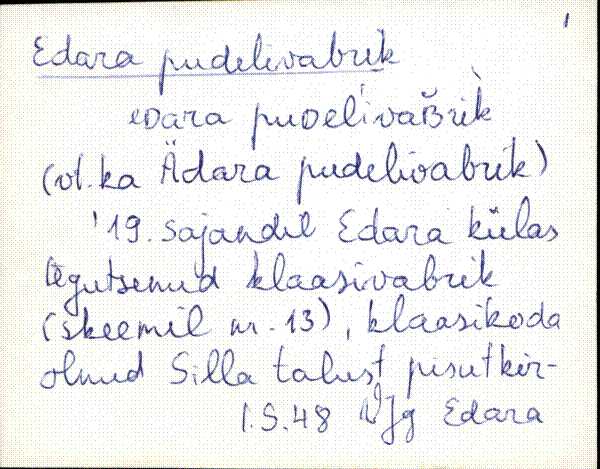 Edara pudelivabrik
eDara puDelivaBrik
(vt. ka Ädara pudelivabrik)
'19. sajandil Edara külas
tegutsenud klaasivabrik
(skeemil nr. 13), klaasikoda
olnud Silla talust pisut kir-
I.S. 48 VJg Edara